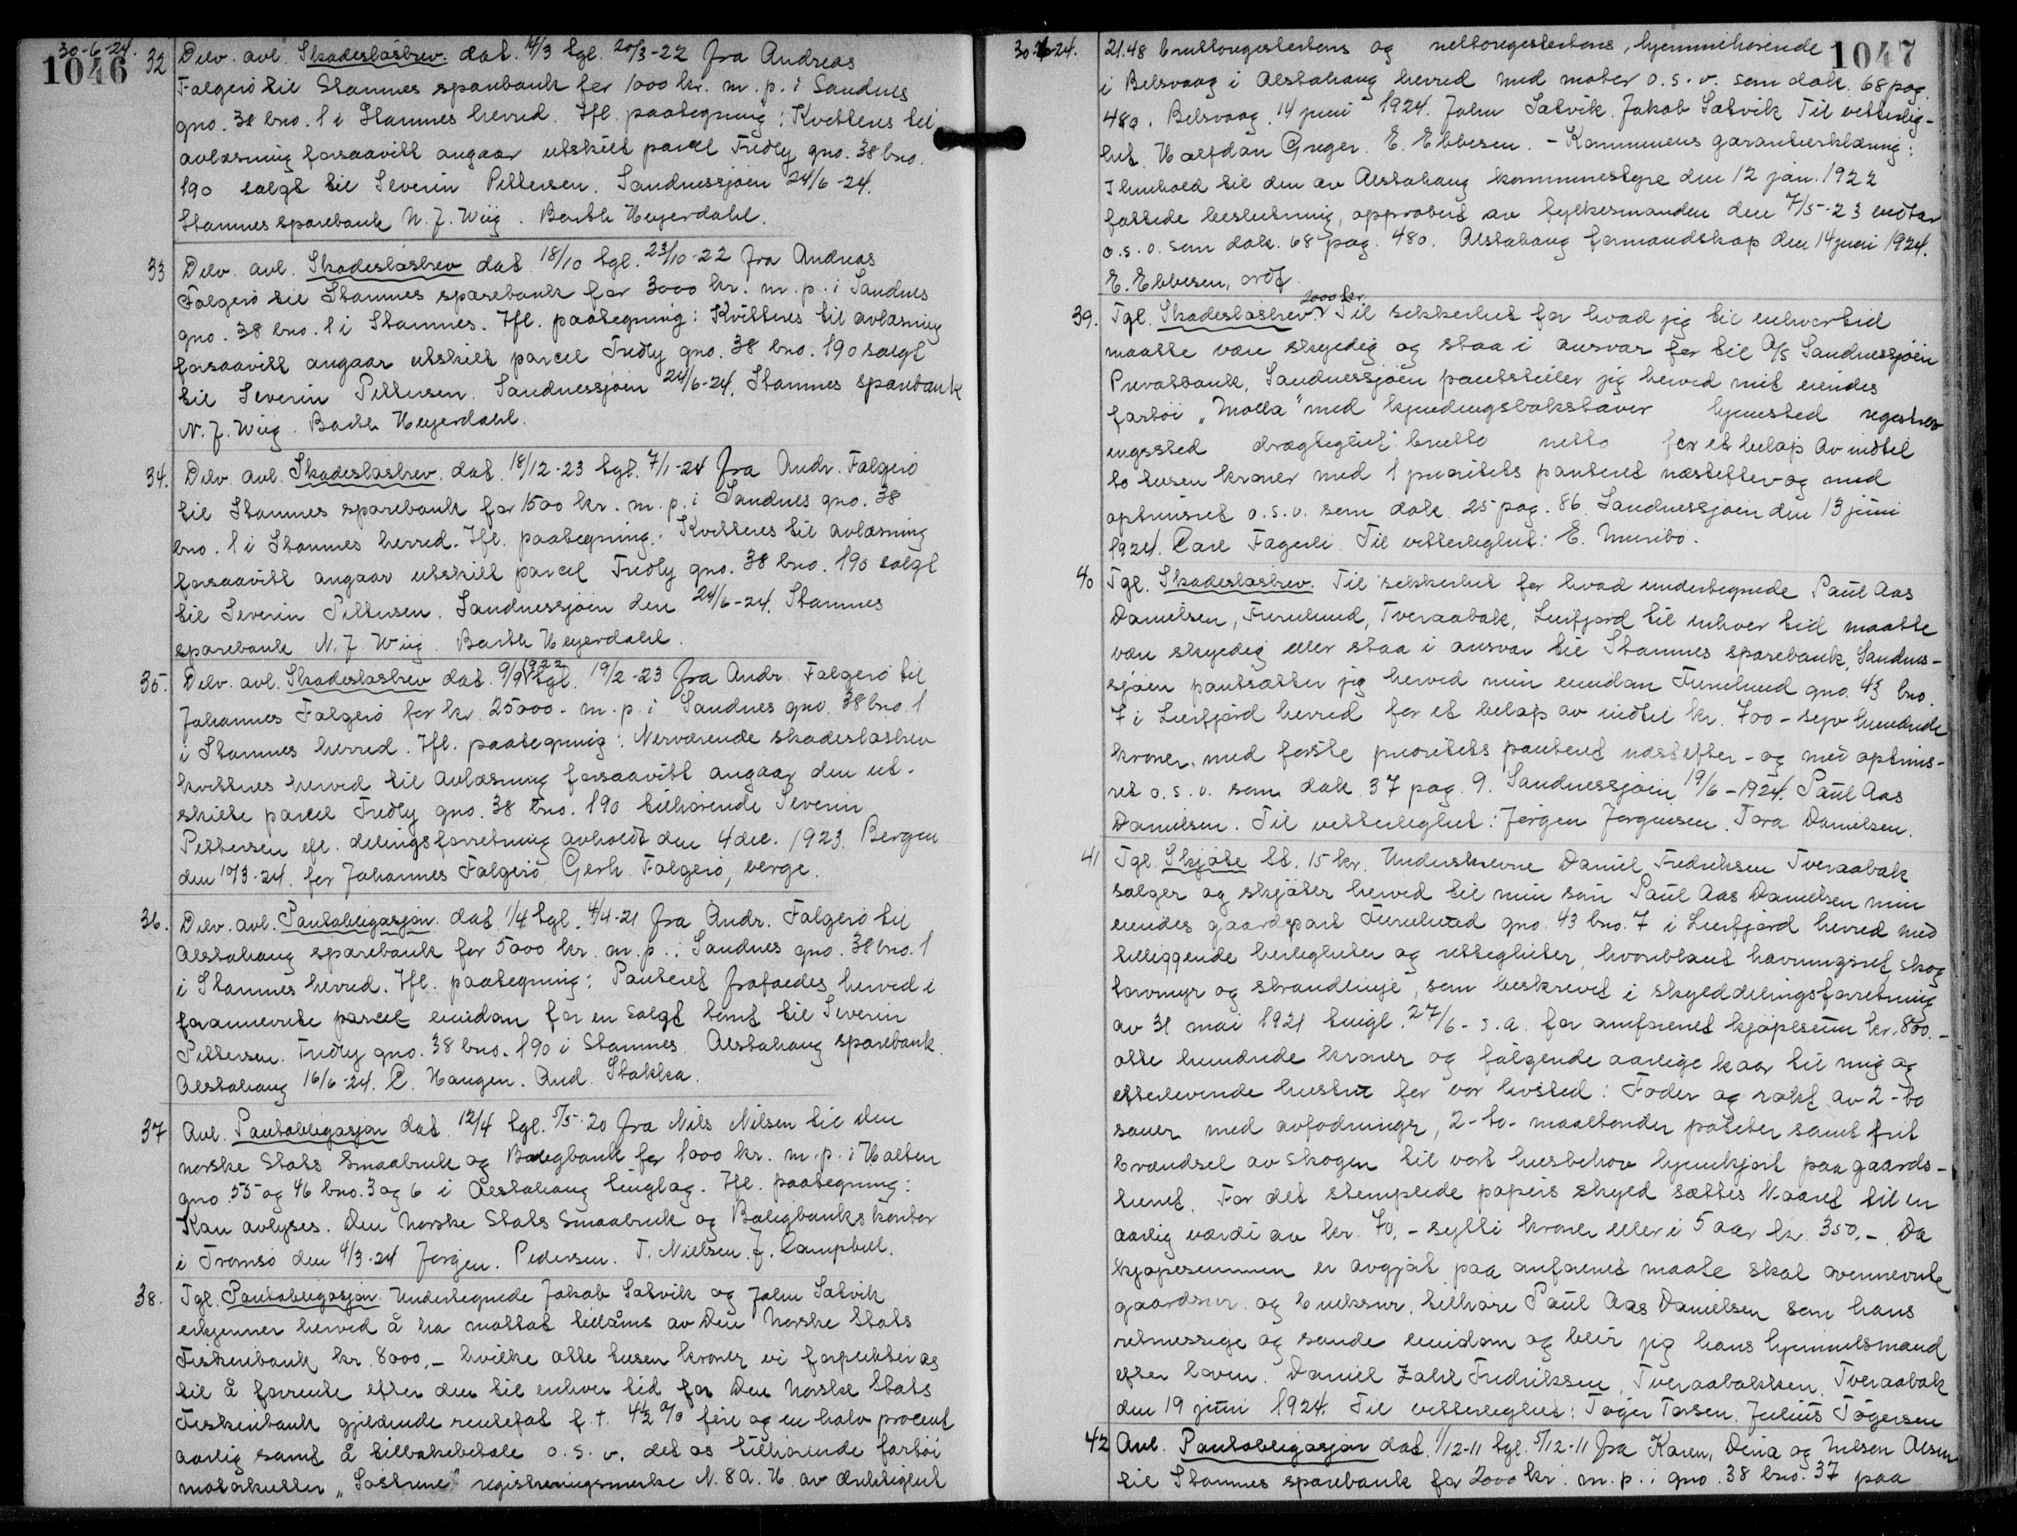 30-6-24.
1046
32 Delv. avl. Skadesløsbrev. dat. 14/3 tgl. 20/3-22 fra Andreas
Falgerø til Stamnes sparebank for 1000 kr. m. p. i Sandnes
gno. 38 bno. 1 i Stamnes herred. Ifl. paategning: Kvitteres til
avlæsning forsaavitt angaar utskilt parcel Fredly gno. 38 bno.
190 solgt til Severin Pettersen. Sandnessjøen 24/6-24.
Stamnes sparebank N. J. Wiig. Barth Heyerdahl.
33 Delv. avl. Skadesløsbrev dat. 18/10 tgl. 23/10-22 fra Andreas
Falgerø til Stamnes sparebank for 3000 kr. m. p. i Sandnes
gno. 38 bno. 1 i Stamnes. Ifl. paategning: Kvitteres til avlæsning
forsaavitt angaar utskilt parcel Fredly gno. 38 bno. 190 solgt
til Severin Pettersen. Sandnessjøen 24/6-24. Stamnes sparebank
N. J. Wiig. Barth Heyerdahl.
34. Delv. avl. Skadesløsbrev. dat. 18/12-23 tgl. 7/1-24 fra Andr. Falgerø
til Stamnes sparebank for 1500 kr. m. p. i Sandnes gno. 38
bno. 1 i Stamnes herred. Ifl. paategning: Kvitteres til avlæsning
forsaavitt angaar utskilt parcel Fredly gno. 38 bno. 190 solgt
til Severin Pettersen. Sandnessjøen den 24/6-24. Stamnes
sparebank N. J. Wiig. Barth Heyerdahl.
35. Delv. avl. Skadesløsbrev dat. 9/9 1922 tgl. 19/2-23 fra Andr. Falgerø til
Johannes Falgerø for kr. 25000.- m. p. i Sandnes gno. 38 bno. 1
i Stamnes herred. Ifl. paategning: Nerværende skadesløsbrev
kvitteres herved til avlæsning forsaavitt angaar den ut-
skilte parcel Fredly gno. 38 bno. 190 tilhørende Severin
Pettersen efl. delingsforretning avholdt den 4 dec. 1923. Bergen
den 10/3-24. for Johannes Falgerø Gerh. Falgerø, verge.
36. Delv. avl. Pantobligasjon. dat. 1/4 tgl. 4/4-21 fra Andr. Falgerø til
Alstahaug sparebank for 5000 kr. m. p. i Sandnes gno. 38 bno. 1
i Stamnes herred. Ifl. paategning: Panteret frafaldes herved i
forannevnte parcel eiendom for en solgt tomt til Severin
Pettersen. Fredly gno. 38 bno. 190 i Stamnes. Alstahaug sparebank.
Alstahaug 16/6-24. C. Haugen. And. Stakka.
37 Avl. Pantobligasjon dat. 12/4 tgl. 5/5-20 fra Nils Nilsen til Den
norske Stats Smaabruk og Boligbank for 1000 kr. m. p. i Halten
gno. 55 og 46 bno. 3 og 6 i Alstahaug tinglag. Ifl. paategning:
Kan avlyses. Den Norske Stats Smaabruk og Boligbanks kontor
i Tromsø den 4/3-24 Jørgen. Pedersen. T. Nielsen. J. Campbell.
38. Tgl. Pantobligasjon. Undertegnede Jakob Satvik og John Satvik
erkjenner herved å ha mottat tillåns av Den Norske Stats
Fiskeribank kr. 8000.- hvilke otte tusen kroner vi forpligter os
til å forrente efter den til enhver tid for Den Norske Stats
Fiskeribank gjeldende rentefot f. t. 4½ % fire og en halv procent
aarlig samt å tilbakebetale o. s. v. det os tilhørende fartøi
motorkutter „Søstrene" registreringsmerke N. 8 A. H. av drektighet
30-6-24.
1047
21.48 bruttoregistertons og nettoregistertons, hjemmehørende
i Belsvaag i Alstahaug herred med motor o. s. v. som dok. 68 pag.
480. Belsvaag. 14 juni 1924. John Satvik. Jakob Satvik Til vitterlig-
het. Halfdan Greger. E. Ebbesen. - Kommunens garantierklæring:
I henhold til den av Alstahaug kommunestyre den 12 jan. 1922
fattede beslutning, approbert av fylkesmanden den 7/5-23 indtar
o. s. v. som dok. 68 pag. 480. Alstahaug formandskap den 14 juni 1924.
E. Ebbesen, ordf.
39. Tgl. Skadesløsbrev. 2000 kr. Til sikkerhet for hvad jeg til enhver tid
maatte være skyldig og staa i ansvar for til A/S Sandnessjøen
Privatbank, Sandnessjøen pantstiller jeg herved mit eiendes
fartøi „Molla" med kjendingsbokstaver hjemsted registrer
ingssted drægtighet: brutto netto for et beløp av indtil
to tusen kroner med 1 prioritets panteret næstefter og med
optrinsret o. s. v. som dok. 25 pag. 86. Sandnessjøen den 13 juni
1924. Carl Fagerli Til vitterlighet: E. Muribø.
40 Tgl. Skadesløsbrev. Til sikkerhet for hvad undertegnede Paul Aas
Danielsen, Furulund, Tveraabak, Leirfjord til enhver tid maatte
være skyldig eller staa i ansvar til Stamnes sparebank, Sandnes-
sjøen pantsætter jeg herved min eiendom Furulund gno. 43 bno.
7 i Leirfjord herred for et beløp av indtil kr. 700 - syv hundrede
kroner, med første prioritets panteret næstefter - og med optrins-
ret o. s. v. som dok 37 pag. 9. Sandnessjøen 19/6-1924. Paul Aas
Danielsen. Til vitterlighet: Jørgen Jørgensen. Tora Danielsen.
41 Tgl. Skjøte st. 15 kr. Underskrevne Daniel Fredriksen Tveraabak
sælger og skjøter herved til min søn Paul Aas Danielsen min
eiendes gaardpart Furulund gno. 43 bno. 7 i Leirfjord herred med
tilliggende herligheter og rettigheter, hvoriblant havningsret, skog
torvmyr og strandlinje, som beskrevet i skylddelingsforretning
av 31 mai 1921 tingl. 27/6-s. a. for omforenet kjøpesum kr. 800.-
otte hundrede kroner og følgende aarlige kaar til mig og
efterlevende hustru for vor livstid: Foder og røkt av 2-to
sauer med avfødninger, 2-to-maaltønder poteter samt frit
brændsel av skogen til vort husbehov hjemkjørt paa gaards-
tunet. For det stemplede papirs skyld sættes kaaret til en
aarlig værdi av kr. 70.- sytti kroner eller i 5 aar kr. 350.-. Da
kjøpesummen er avgjort paa omforenet maate skal ovennevnte
gaardsnr. og bruksnr. tilhøre Paul Aas Danielsen som hans
retmessige og sande eiendom og blir jeg hans hjemmelsmand
efter loven. Daniel Zahl Fredriksen, Tveraabakken. Tveraabak
den 19 juni 1924. Til vitterlighet: Tøger Torsen. Julius Tøgersen
42 Avl. Pantobligasjon dat. 1/12-11 tgl. 5/12-11 fra Karen, Dina og Nilsen Alsen
til Stamnes sparebank for 2000 kr. m. p. i gno. 38 bno. 37 paa